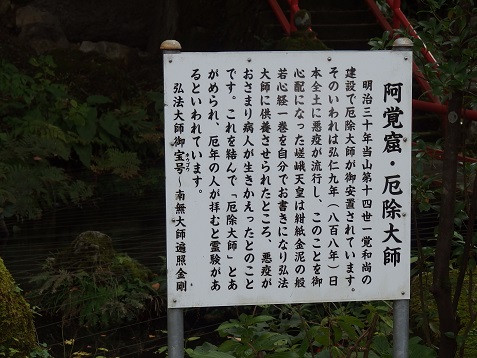 阿覚窟・厄除大師
明治三十年当山第十四世一覚和尚の
建設で厄除大師が御安置されています。
そのいわれは弘仁九年(八百八年)日
本全土に悪疫が流行し、このことを御
心配になった嵯峨天皇は紺紙金泥の般
若心経一巻を自分でお書きになり弘法
大師に供養させられたところ、悪疫が
おさまり病人が生きかえったとのこと
です。これを結んで「厄除大師」とあ
がめられ、厄年の人が拝むと霊験があ
るといわれています。
弘法大師御宝号〜南無大師遍照金剛